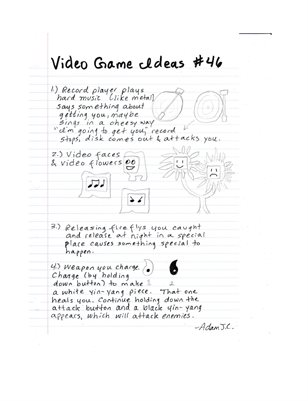 Video Game Ideas #46
1.) Record player plays
hard music (like metal)
says something about
getting you, maybe
sings in a cheesy way
"I'm going to get you", record
stops, disk comes out & attacks you.
2.) Video faces
& video flowers
3.) Releasing fireflys you caught
and release at night in a special
place causes something special to
happen.
4.) Weapon you charge
Charge (by holding
down button) to make 1 2
a white yin-yang piece. That one
heals you. Continue holding down the
attack button and a black yin-yang
appears, which will attack enemies.
-Adam J.C.